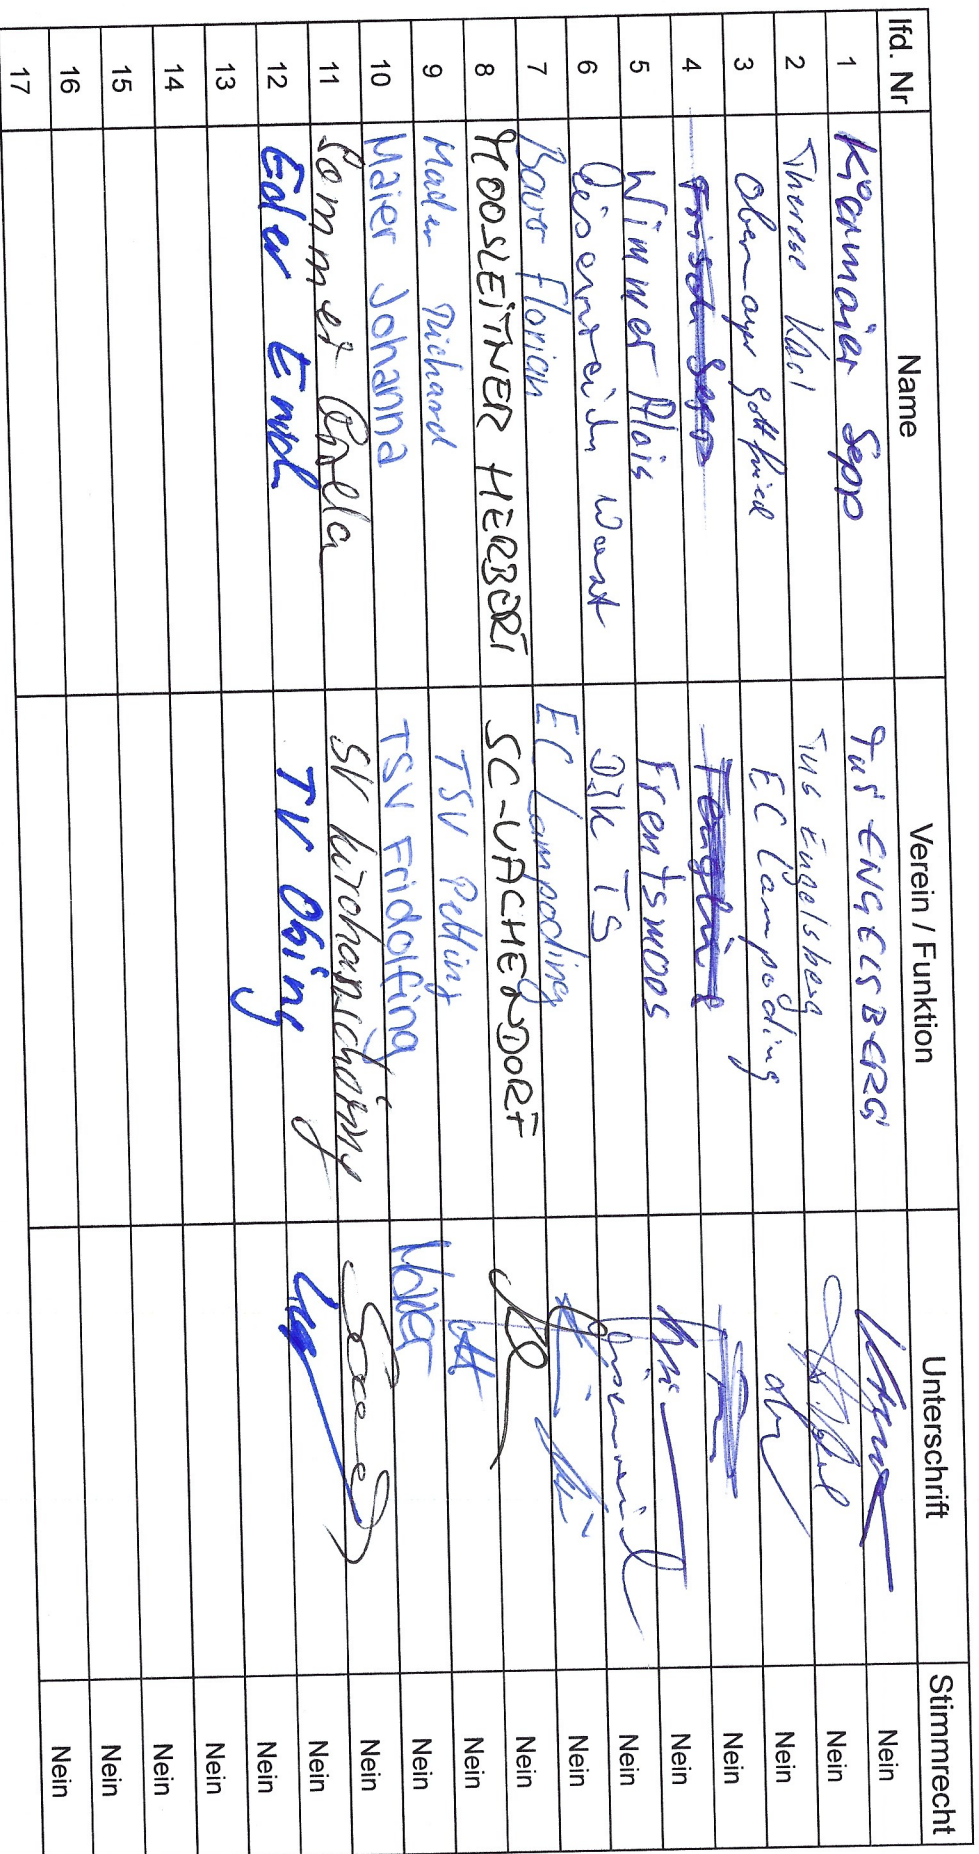 lfd. Nr Name Verein / Funktion Unterschrift Stimmrecht
1 Sepp TUS ENGELSBERG Nein
2 Therese Karl TuS Engelsberg Nein
3 Obermayer Gottfried EC Lampoding Nein
4 Frisch Sepp Nein
5 Wimmer Alois Frentsmoos Nein
6 DJK TS Nein
7 Bauer Florian EC Lampoding Nein
8 MOOSLEITNER HERBERT SC-VACHENDORF Nein
9 Mader Richard TSV Petting Nein
10 Maier Johanna TSV Fridolfing Maier Nein
11 Sommer SV Kirchanschöring Nein
12 Eder Erich TV Obing Nein
13 Nein
14 Nein
15 Nein
16 Nein
17 Nein